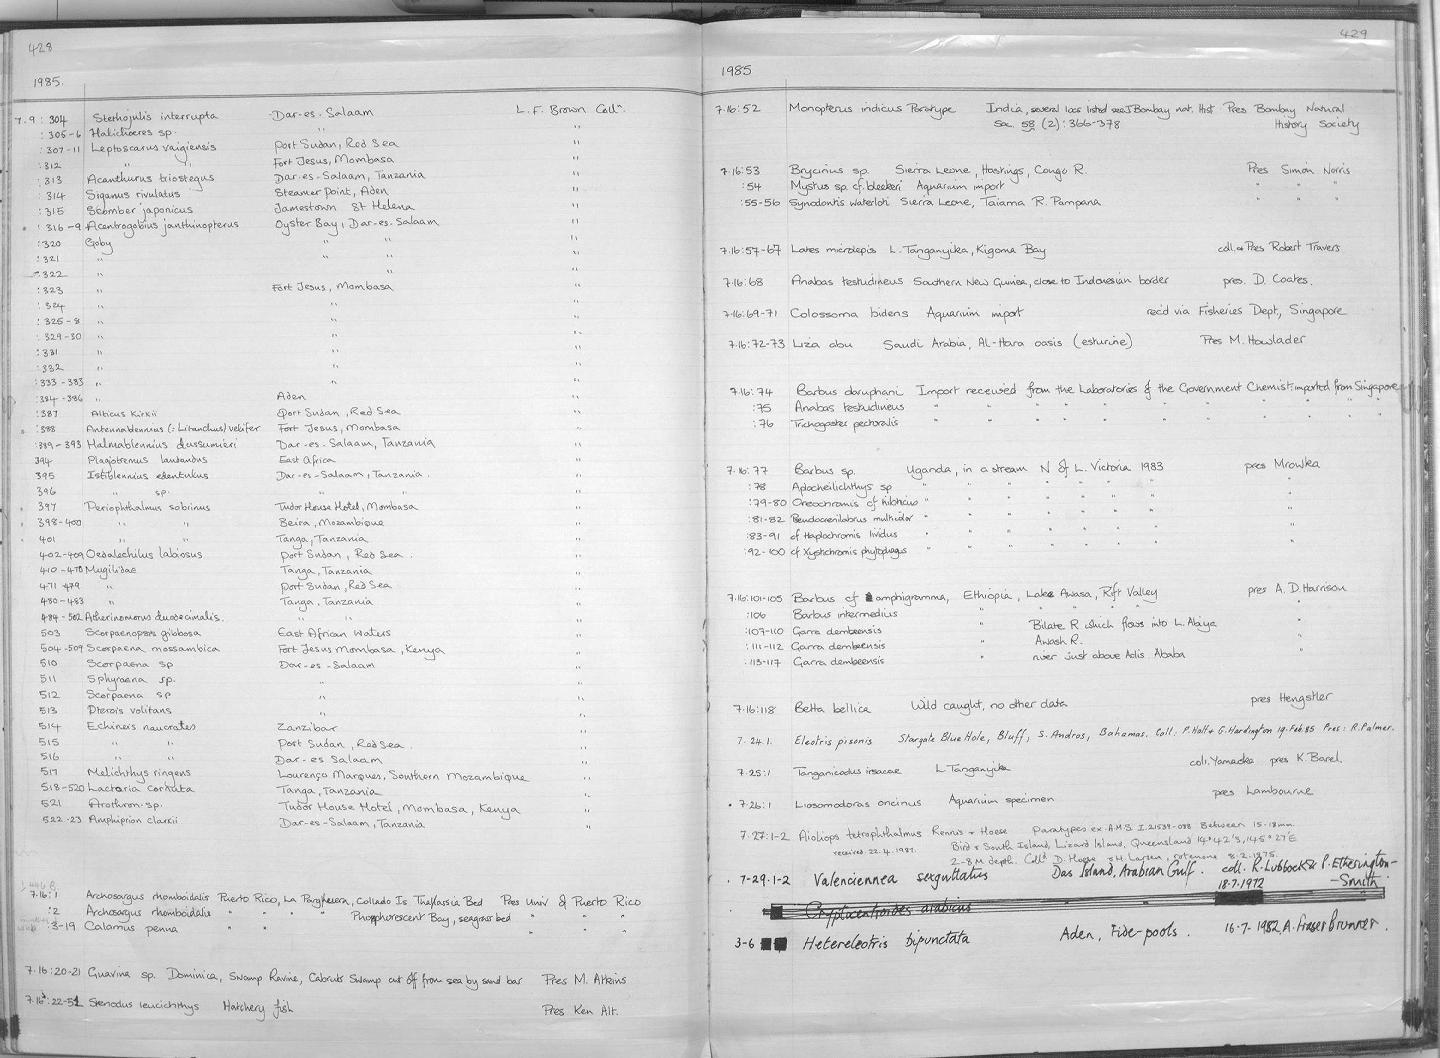 428
1985.
7.9 : 304 Stethojulis interrupta Dar-es-Salaam L.F. Brown Colln.
: 305-6 Halichoeres sp. " "
: 307-11 Leptoscarus vaigiensis Port Sudan, Red Sea "
: 312 " " Fort Jesus, Mombasa "
: 313 Acanthurus triostegus Dar-es-Salaam, Tanzania "
: 314 Siganus rivulatus Steamer Point, Aden "
: 315 Scomber japonicus Jamestown St Helena "
: 316-9 Acentrogobius janthinopterus Oyster Bay, Dar-es-Salaam "
: 320 Goby " " "
: 321 " " "
: 322 " " "
: 323 " Fort Jesus, Mombasa "
: 324 " " "
: 325-8 " " "
: 329-30 " " "
: 331 " " "
: 332 " " "
: 333-383 " " "
: 384-386 " Aden "
: 387 Alticus Kirkii Port Sudan, Red Sea "
: 388 Antennablennius (: Litanchus) velifer Fort Jesus, Mombasa "
: 389-393 Halmablennius dussumieri Dar-es-Salaam, Tanzania "
394 Plagiotremus East Africa "
395 Istiblennius edentulus Dar-es-Salaam, Tanzania. "
396 " sp. " " "
397 Periophthalmus sobrinus Tudor House Hotel, Mombasa "
398-400 " " Beira, Mozambique "
401 " " Tanga, Tanzania "
402-409 Oedalechilus labiosus Port Sudan, Red Sea. "
410-470 Mugilidae Tanga, Tanzania "
471-479 " Port Sudan, Red Sea "
480-483 " Tanga, Tanzania "
484-502 Atherinomorus duodecimalis. " " "
503 Scorpaenopsis gibbosa East African Waters "
504-509 Scorpaena mossambica Fort Jesus Mombasa, Kenya "
510 Scorpaena sp Dar-es-Salaam "
511 Sphyraena sp. " "
512 Scorpaena sp "
513 Pterois volitans " "
514 Echineis naucrates Zanzibar "
515 " " Port Sudan, Red Sea. "
516 " " Dar-es Salaam "
517 Melichthys ringens Lourenço Marques, Southern Mozambique "
518-520 Lactoria cornuta Tanga, Tanzania "
521 Arothron sp. Tudor House Hotel, Mombasa, Kenya "
522-23 Amphiprion clarkii Dar-es-Salaam, Tanzania "
7.16 : 1 Archosargus rhomboidalis Puerto Rico, La Parguera, collado Is Thallarsia Bed Pres Univ of Puerto Rico
: 2 Archosargus rhomboidalis " " " Phosphorescent Bay, seagrass bed " " " "
: 3-19 Calamus penna " " " " " "
7.16:20-21 Guavina sp. Dominica, Swamp Ravine, Cabrits Swamp cut off from sea by sand bar Pres M. Atkins
7.16:22-51 Stenodus leucichthys Hatchery fish Pres Ken Alt.
429
1985
7.16:52 Monopterus indicus Paratype India, several locs listed see J Bombay nat. Hist Pres Bombay Natural
Soc. 58 (2): 366-378 History Society
7.16:53 Brycinus sp. Sierra Leone, Hastings, Congo R. Pres Simon Norris
:54 Mystus sp. cf. bleekeri Aquarium import " " "
:55-56 Synodontis waterloti Sierra Leone, Taiama R. Pampana " " "
7.16:57-67 Lates microlepis L. Tanganyika, Kigoma Bay coll. & Pres Robert Travers
7.16:68 Anabas testudineus Southern New Guinea, close to Indonesian border pres. D. Coates.
7.16:69-71 Colossoma bidens Aquarium import rec'd via Fisheries Dept, Singapore
7.16:72-73 Liza abu Saudi Arabia, Al-Hara oasis (esturine) Pres M. Howlader
7.16:74 Barbus daruphani Import received from the Laboratories of the Government Chemist: imported from Singapore
:75 Anabas testudineus " " " " " " " " "
:76 Trichogaster pectoralis " " " " " " " "
7.16:77 Barbus sp. Uganda, in a stream N of L. Victoria 1983 pres Mrowka
:78 Aplocheilichthys sp " " " " " " "
:79-80 Oreochromis cf niloticus " " " " " " "
:81-82 Pseudocrenilabrus multicolor " " " " " " "
:83-91 cf Haplochromis lividus " " " " " " "
:92-100 cf Xystichromis phytophagus " " " " " "
7.16:101-105 Barbus cf amphigramma, Ethiopia, Lake Awasa, Rift Valley pres A.D. Harrison
:106 Barbus intermedius " " " " "
:107-110 Garra dembeensis " Bilate R. which flows into L. Abiya "
:111-112 Garra dembeensis " Awash R. "
:113-117 Garra dembeensis " river just above Adis Ababa "
7.16:118 Betta bellica Wild caught, no other data pres Hengstler
7.24.1. Eleotris pisonis Stargate Blue Hole, Bluff, S. Andros, Bahamas. Coll. P. Hatt & G. Hardington 19. Feb. 85 Pres: R. Palmer.
7.25:1 Tanganicodus irsacae L Tanganyika coll. Yamaoka pres K. Barel.
7.26:1 Liosomodoras oncinus Aquarium specimen pres Lambourne
7.27:1-2 Aioliops tetrophthalmus Rennis & Hoese Paratypes ex. A.M.S I.21539-088 Between 15-18mm.
received 22.4.1987. Bird & South Island, Lizard Island, Queensland 14°42'S, 145°27'E
2-8M depth. Colld D. Hoese & H Larson, rotenone 8.2.1975.
7-29.1-2 Valenciennea sexguttatus Das Island, Arabian Gulf. coll. R. Lubbock & P. Etherington-
18.7.1972 Smith.
Cryptocentroides arabicus
3-6 Hetereleotris bipunctata Aden, tide-pools. 16.7.1982, A. Fraser Brunner.